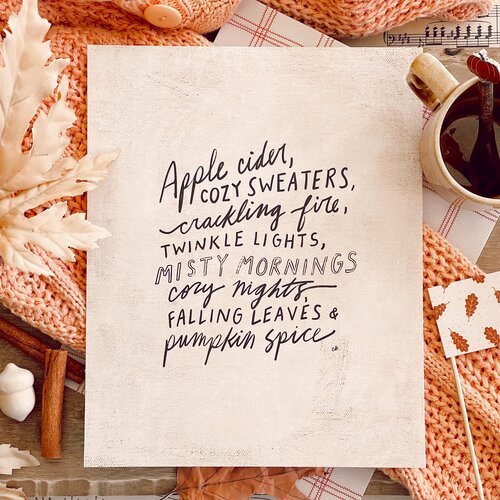 Apple cider,
COZY SWEATERS,
crackling fire,
TWINKLE LIGHTS,
MISTY MORNINGS
cozy nights,
FALLING LEAVES &
pumpkin spice
cb